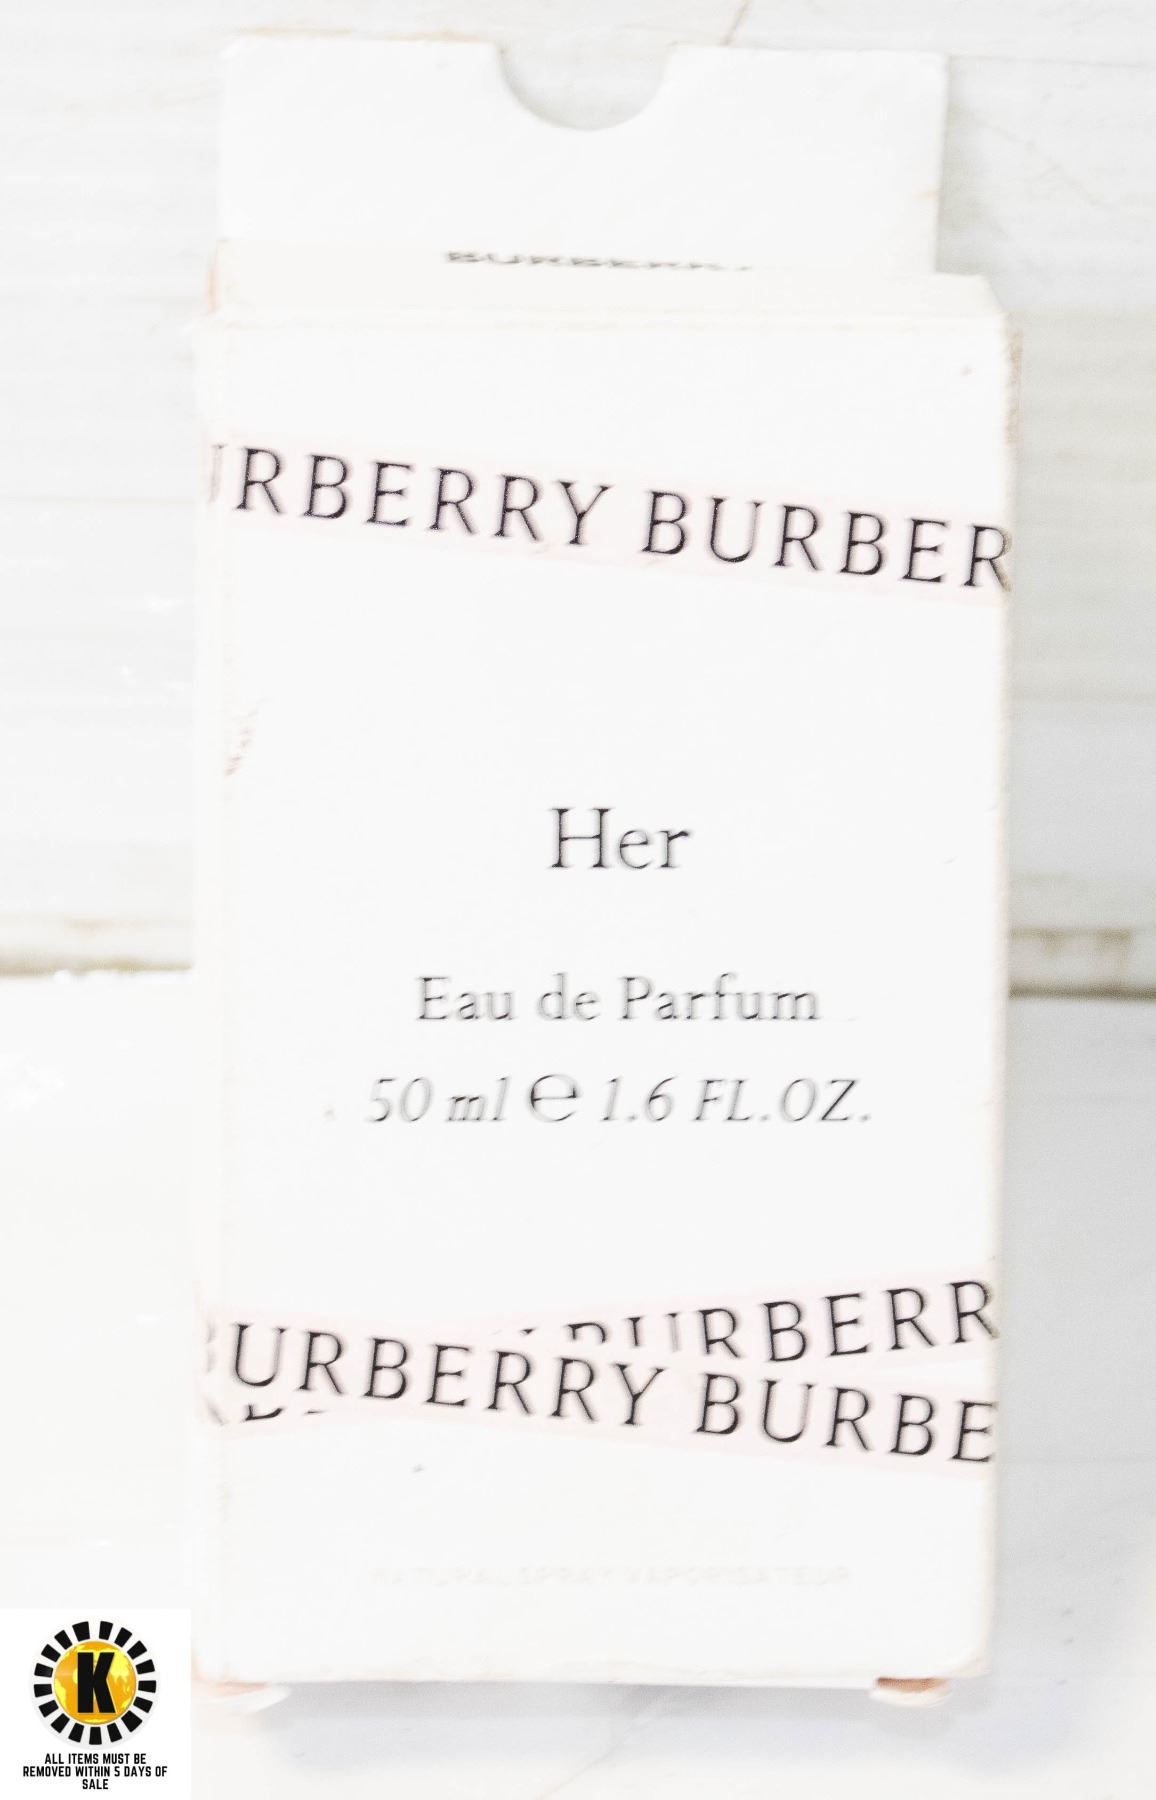 BURBERRY
URBERRY BURBER
Her
Eau de Parfum
50 ml ℮ 1.6 FL.OZ.
BURBERR
BURBERRY BURBE
NATURAL SPRAY VAPORISATEUR
K
ALL ITEMS MUST BE
REMOVED WITHIN 5 DAYS OF
SALE